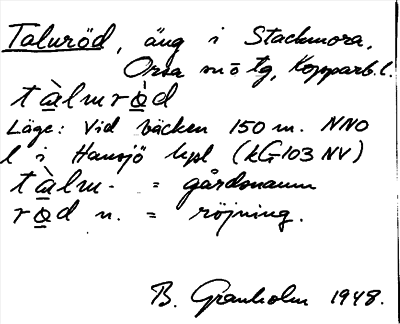 Talmröd, äng i Stackmora,
Orsa sn o tg, Kopparb. l.
tàlmrò̲d
Läge: Vid bäcken 150 m. NNO
l i Hansjö hpl (kG 103 NV)
tàlm- = gårdsnamn
rò̲d n. = röjning.
B. Granholm 1948.